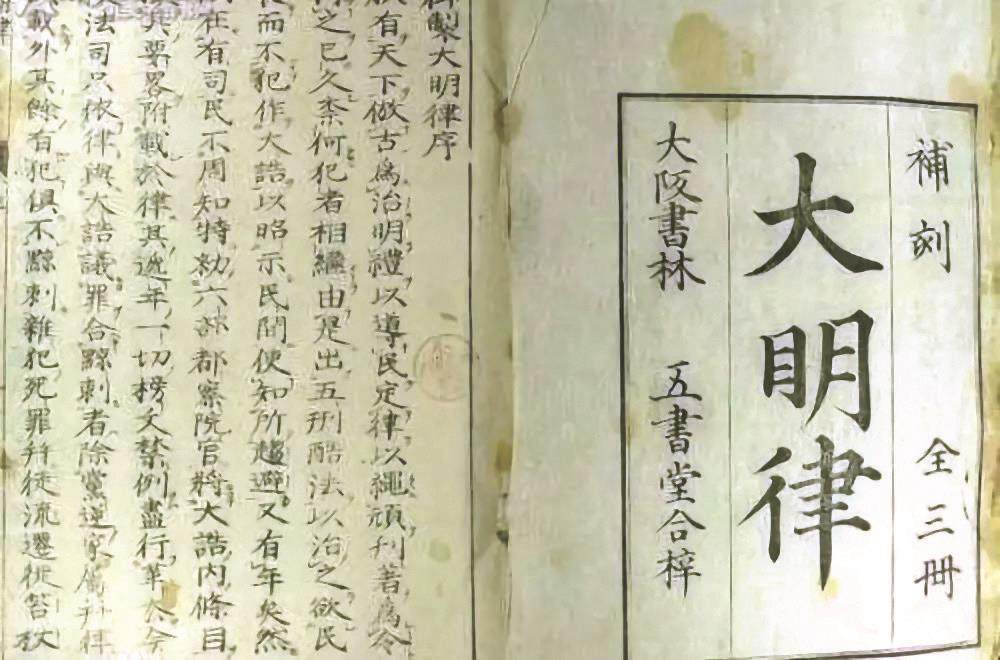 補刻 全三冊
大眀律
大阪書林 五書堂合梓
御製大明律序
朕有天下倣古爲治明禮以導民定律以繩頑刋著爲令
之已久柰何犯者相繼由是出五刑酷法以治之欲民
而不犯作大誥以昭示民間使知所趨避又有年矣然
在有司民不周知特勑六部都察院官將大誥内條目
其要畧附載於律其逓年一切榜文禁例盡行革去今
法司只依律與大誥議罪合黥刺者除黨逆家屬并律
載外其餘有犯俱不黥刺雜犯死罪并徒流遷徙笞杖